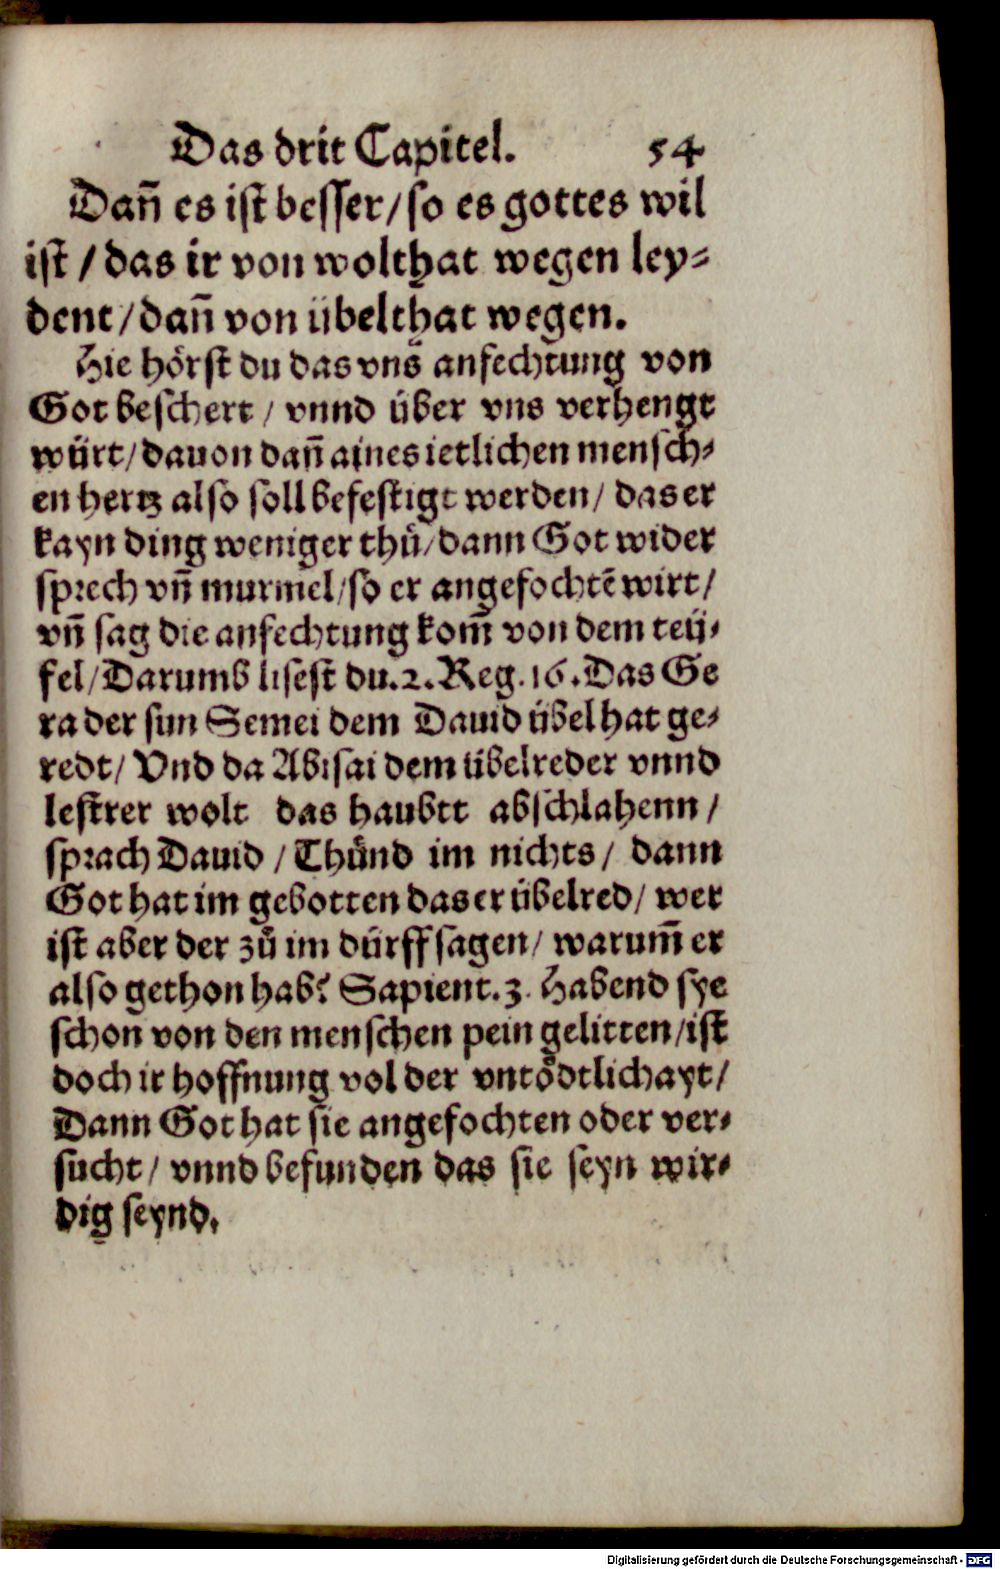 Das drit Capitel. 54
Dañ es ist besser/so es gottes wil
ist/das ir von wolthat wegen ley⸗
dent/dañ von übelthat wegen.
Hie hörst du das vns anfechtung von
Got beschert/vnnd über vns verhengt
würt/dauon dañ aines ietlichen mensch⸗
en hertz also soll befestigt werden/das er
kayn ding weniger thů/dann Got wider
sprech vñ murmel/so er angefochtē wirt/
vñ sag die anfechtung kom̃ von dem teü⸗
fel/Darumb lisest du.2.Reg.16.Das Ge
ra der sun Semei dem Dauid übel hat ge⸗
redt/Vnd da Abisai dem übelreder vnnd
lestrer wolt das haubtt abschlahenn/
sprach Dauid/Thůnd im nichts/dann
Got hat im gebotten das er übelred/wer
ist aber der zů im dürff sagen/warum̃ er
also gethon hab? Sapient.3. Habend sye
schon von den menschen pein gelitten/ist
doch ir hoffnung vol der vntödtlichayt/
Dann Got hat sie angefochten oder ver⸗
sucht/vnnd befunden das sie seyn wir⸗
dig seynd.
Digitalisierung gefördert durch die Deutsche Forschungsgemeinschaft - DFG